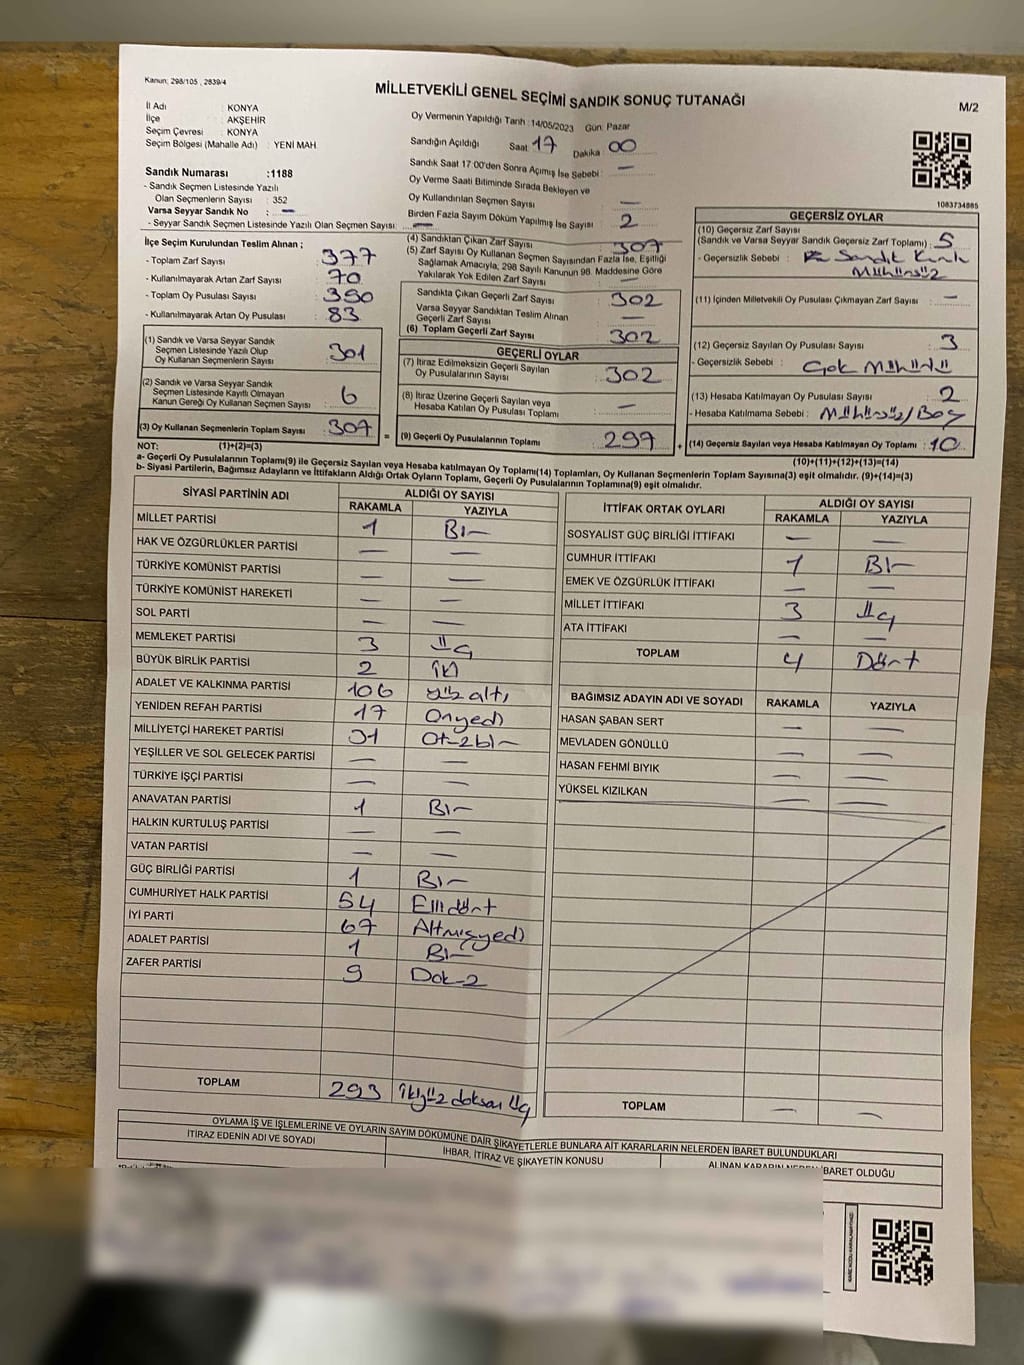 Kanun; 298/105 , 2839/4
MİLLETVEKİLİ GENEL SEÇİMİ SANDIK SONUÇ TUTANAĞI
M/2
İl Adı : KONYA
İlçe : AKŞEHİR
Seçim Çevresi : KONYA
Seçim Bölgesi (Mahalle Adı) : YENİ MAH.
Oy Vermenin Yapıldığı Tarih :14/05/2023 Gün: Pazar
Sandığın Açıldığı Saat 17 Dakika 00
Sandık Saat 17:00'den Sonra Açımış İse Sebebi : —
Oy Verme Saati Bitiminde Sırada Bekleyen ve
Oy Kullandırılan Seçmen Sayısı : —
Birden Fazla Sayım Döküm Yapılmış İse Sayısı : 2
Sandık Numarası :1188
- Sandık Seçmen Listesinde Yazılı
Olan Seçmenlerin Sayısı : 352
Varsa Seyyar Sandık No : —
- Seyyar Sandık Seçmen Listesinde Yazılı Olan Seçmen Sayısı: —
1083734885
İlçe Seçim Kurulundan Teslim Alınan ;
- Toplam Zarf Sayısı : 377
- Kullanılmayarak Artan Zarf Sayısı : 70
- Toplam Oy Pusulası Sayısı : 350
- Kullanılmayarak Artan Oy Pusulası : 83
(1) Sandık ve Varsa Seyyar Sandık
Seçmen Listesinde Yazılı Olup
Oy Kullanan Seçmenlerin Sayısı : 301
(2) Sandık ve Varsa Seyyar Sandık
Seçmen Listesinde Kayıtlı Olmayan
Kanun Gereği Oy Kullanan Seçmen Sayısı : 6
(3) Oy Kullanan Seçmenlerin Toplam Sayısı : 307 =
(4) Sandıktan Çıkan Zarf Sayısı : 307
(5) Zarf Sayısı Oy Kullanan Seçmen Sayısından Fazla İse, Eşitliği
Sağlamak Amacıyla; 298 Sayılı Kanunun 98. Maddesine Göre
Yakılarak Yok Edilen Zarf Sayısı : —
Sandıkta Çıkan Geçerli Zarf Sayısı : 302
Varsa Seyyar Sandıktan Teslim Alınan
Geçerli Zarf Sayısı : —
(6) Toplam Geçerli Zarf Sayısı : 302
GEÇERLİ OYLAR
(7) İtiraz Edilmeksizin Geçerli Sayılan
Oy Pusulalarının Sayısı : 302
(8) İtiraz Üzerine Geçerli Sayılan veya
Hesaba Katılan Oy Pusulası Toplamı : —
(9) Geçerli Oy Pusulalarının Toplamı : 297 +
GEÇERSİZ OYLAR
(10) Geçersiz Zarf Sayısı
(Sandık ve Varsa Seyyar Sandık Geçersiz Zarf Toplamı) : 5
- Geçersizlik Sebebi : Sandık Kurulu
Mühürsüz
(11) İçinden Milletvekili Oy Pusulası Çıkmayan Zarf Sayısı : —
(12) Geçersiz Sayılan Oy Pusulası Sayısı : 3
- Geçersizlik Sebebi : Çok Mühürlü
(13) Hesaba Katılmayan Oy Pusulası Sayısı : 2
- Hesaba Katılmama Sebebi : Mühürsüz/Boş
(14) Geçersiz Sayılan veya Hesaba Katılmayan Oy Toplamı : 10
NOT: (1)+(2)=(3)
(10)+(11)+(12)+(13)=(14)
a- Geçerli Oy Pusulalarının Toplamı(9) ile Geçersiz Sayılan veya Hesaba katılmayan Oy Toplamı(14) Toplamları, Oy Kullanan Seçmenlerin Toplam Sayısına(3) eşit olmalıdır. (9)+(14)=(3)
b- Siyasi Partilerin, Bağımsız Adayların ve İttifakların Aldığı Ortak Oyların Toplamı, Geçerli Oy Pusulalarının Toplamına(9) eşit olmalıdır.
SİYASİ PARTİNİN ADI ALDIĞI OY SAYISI
RAKAMLA YAZIYLA
MİLLET PARTİSİ 1 Bir
HAK VE ÖZGÜRLÜKLER PARTİSİ — —
TÜRKİYE KOMÜNİST PARTİSİ — —
TÜRKİYE KOMÜNİST HAREKETİ — —
SOL PARTİ — —
MEMLEKET PARTİSİ 3 üç
BÜYÜK BİRLİK PARTİSİ 2 iki
ADALET VE KALKINMA PARTİSİ 106 yüz altı
YENİDEN REFAH PARTİSİ 17 Onyedi
MİLLİYETÇİ HAREKET PARTİSİ 31 Otuzbir
YEŞİLLER VE SOL GELECEK PARTİSİ — —
TÜRKİYE İŞÇİ PARTİSİ — —
ANAVATAN PARTİSİ 1 Bir
HALKIN KURTULUŞ PARTİSİ — —
VATAN PARTİSİ — —
GÜÇ BİRLİĞİ PARTİSİ 1 Bir
CUMHURİYET HALK PARTİSİ 54 Ellidört
İYİ PARTİ 67 Altmışyedi
ADALET PARTİSİ 1 Bir
ZAFER PARTİSİ 9 Dokuz
TOPLAM 293 ikiyüz doksan üç
İTTİFAK ORTAK OYLARI ALDIĞI OY SAYISI
RAKAMLA YAZIYLA
SOSYALİST GÜÇ BİRLİĞİ İTTİFAKI — —
CUMHUR İTTİFAKI 1 Bir
EMEK VE ÖZGÜRLÜK İTTİFAKI — —
MİLLET İTTİFAKI 3 üç
ATA İTTİFAKI — —
TOPLAM 4 Dört
BAĞIMSIZ ADAYIN ADI VE SOYADI RAKAMLA YAZIYLA
HASAN ŞABAN SERT — —
MEVLADEN GÖNÜLLÜ — —
HASAN FEHMİ BIYIK — —
YÜKSEL KIZILKAN — —
TOPLAM — —
OYLAMA İŞ VE İŞLEMLERİNE VE OYLARIN SAYIM DÖKÜMÜNE DAİR ŞİKAYETLERLE BUNLARA AİT KARARLARIN NELERDEN İBARET BULUNDUKLARI
İTİRAZ EDENİN ADI VE SOYADI İHBAR, İTİRAZ VE ŞİKAYETİN KONUSU ALINAN KARARIN NEDEN İBARET OLDUĞU